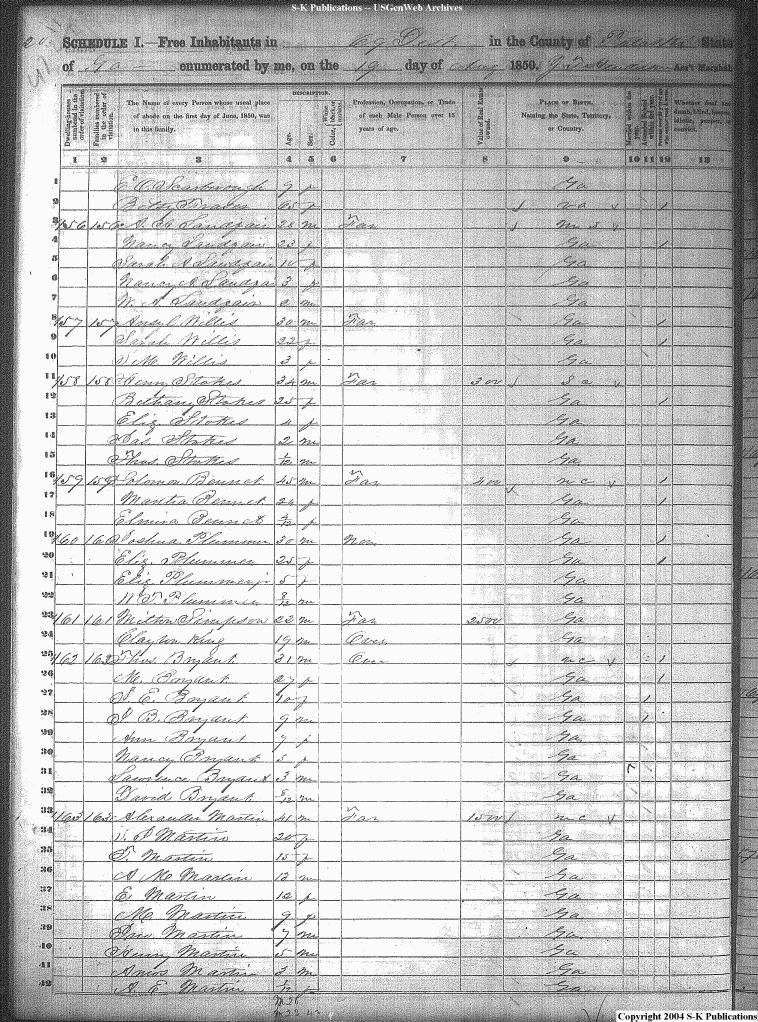 S-K Publications -- USGenWeb Archives
SCHEDULE I.—Free Inhabitants in 69 Dist in the County of Pulaski State
of Ga enumerated by me, on the 19 day of Aug 1850. Ass't Marshal
DESCRIPTION.
Dwelling-houses numbered in the order of visitation. Families numbered in the order of visitation. The Name of every Person whose usual place of abode on the first day of June, 1850, was in this family. Age. Sex. Color, White, black, or mulatto. Profession, Occupation, or Trade of each Male Person over 15 years of age. Value of Real Estate owned. PLACE OF BIRTH. Naming the State, Territory, or Country. Married within the year. Whether deaf and dumb, blind, insane, idiotic, pauper, or convict.
1 2 3 4 5 6 7 8 9 10 11 12 13
1 E C Scarborough 9 f Ga
2 65 f Va /
3 156 156 A G Landpair 28 m Far
4 Nancy Landpair 23 f Ga /
5 Sarah A Landpair 10 f Ga
6 Nancy A Landpair 3 f Ga
7 W A Landpair 2 m Ga
8 157 157 Ansel Willis 30 m Far Ga /
9 Sarah Willis 22 f Ga /
10 M Willis 3 f Ga
11 158 158 Henry Stokes 34 m Far 300
12 Bethany Stokes 25 f Ga /
13 Eliz Stokes 4 f Ga
14 Jas. Stokes 2 m Ga
15 Thos. Stokes m Ga
16 159 159 Solomon Bennet 45 m Far 400 n c /
17 Martha Bennet 24 f Ga /
18 Elmina Bennet f Ga
19 160 160 Joshua Plummer 30 m Non Ga /
20 Eliz. Plummer 25 f Ga /
21 Eliz Plummer jr 5 f Ga
22 Plummer 8/12 m Ga
23 161 161 Milton Simpson 22 m Far 2500 Ga
24 Clayton King 19 m Over Ga
25 162 162 Thos. Bryant 31 m Over n c /
26 M. Bryant 27 f Ga /
27 S. E. Bryant 10 f Ga /
28 J B. Bryant 9 m Ga /
29 Ann Bryant 7 f Ga
30 Nancy Bryant 5 f Ga
31 Lawrence Bryant 3 m Ga
32 David Bryant 8/12 m Ga
33 163 163 Alexander Martin 41 m Far 1500 n c
34 P Martin 20 f Ga
35 T. Martin 15 f Ga
36 A M Martin 13 m Ga
37 E Martin 12 f Ga
38 M Martin 9 f Ga
39 Martin 7 m Ga
40 Henry Martin 5 m Ga
41 Amos Martin 3 m Ga
42 A. E. Martin f Ga
Copyright 2004 S-K Publications